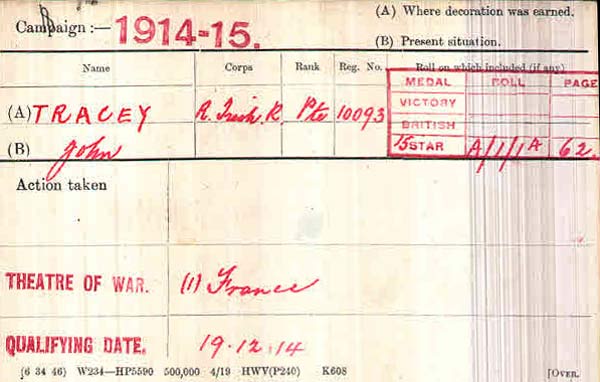 Campaign :— 1914-15.
(A) Where decoration was earned.
(B) Present situation.
Name Corps Rank Reg. No. Roll on which included (if any)
MEDAL ROLL PAGE
VICTORY
BRITISH
15 STAR A/1/1A 62.
(A) TRACEY R. Irish. R. Pte 10093
(B) John
Action taken
THEATRE OF WAR. (1) France
QUALIFYING DATE. 19.12.14
(6 34 46) W234—HP5590 500,000 4/19 HWV(P240) K608 [OVER.